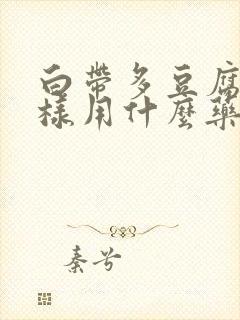 白帶多豆腐
樣用什麼藥
秦兮